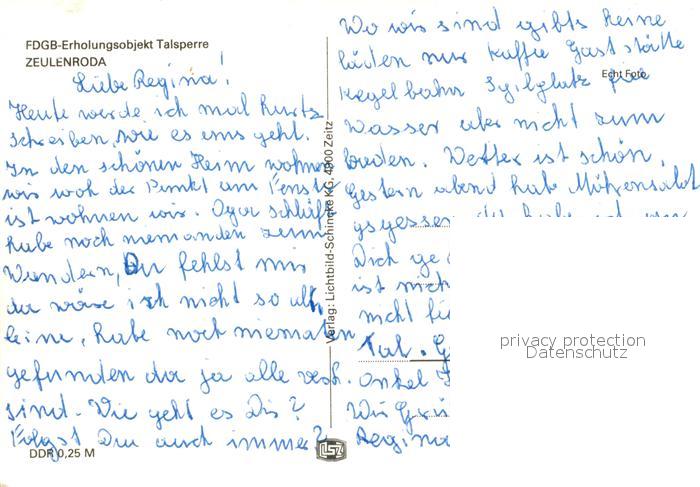 FDGB-Erholungsobjekt Talsperre
ZEULENRODA
Liebe Regina!
Heute werde ich mal kurtz
schreiben, wie es uns geht.
In den schönen Heim wohnen
wir woh der Punkt am Fenster
ist wohnen wir. Opa schläft
habe noch niemanden zum
Wandern, Du fehlst mir
da wäre ich nicht so all
leine, habe noch niematen
gefunden da ja alle verh.
sind. Wie geht es Dir?
Folgst Du auch immer?
DDR 0,25 M
Verlag: Lichtbild-Schincke KG, 4900 Zeitz
Wo wir sind gibts keine
läden nur kaffee Gaststätte
Kegelbahn Spilplatz
Echt Foto
Wasser aber nicht zum
baden. Wetter ist schön,
Gestern abend habe Möhrensalat
gegessen
Dich ge
ist nich
nicht fü
Tal. G
Onkel
Wir Grü
Regina
privacy protection
Datenschutz
LSZ